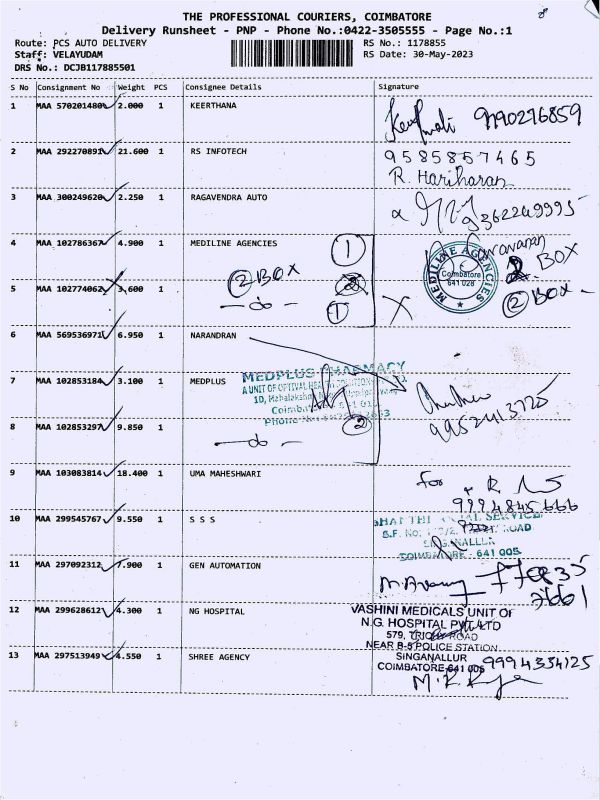 THE PROFESSIONAL COURIERS, COIMBATORE
Delivery Runsheet - PNP - Phone No.:0422-3505555 - Page No.:1
Route: PCS AUTO DELIVERY
RS No.: 1178855
Staff: VELAYUDAM
RS Date: 30-May-2023
DRS No.: DCJB117885501
S No Consignment No Weight PCS Consignee Details Signature
1 MAA 570201480 2.000 1 KEERTHANA
9790276859
2 MAA 292270891 21.600 1 RS INFOTECH
9585857465
R. Hariharan
3 MAA 300249620 2.250 1 RAGAVENDRA AUTO
9362249995
4 MAA 102786367 4.900 1 MEDILINE AGENCIES
1
Saravanan
MEDILINE AGENCIES
Coimbatore
641 028
2 BOX
2 BOX
5 MAA 102774062 3.600 1
- do -
1
2 BOX -
6 MAA 569536971 6.950 1 NARANDRAN
7 MAA 102853184 3.100 1 MEDPLUS
MEDPLUS PHARMACY
A UNIT OF OPTIVAL HEALTH SOLUTIONS
9952413725
8 MAA 102853297 9.850 1
- do -
2
9 MAA 103083814 18.400 1 UMA MAHESHWARI
for
9994845666
10 MAA 299545767 9.550 1 S S S
S.F. No.
ROAD
COIMBATORE - 641 005
11 MAA 297092312 7.900 1 GEN AUTOMATION
770835
7661
12 MAA 299628612 4.300 1 NG HOSPITAL
VASHINI MEDICALS UNIT OF
N.G. HOSPITAL PVT LTD
579, TRICHY ROAD
NEAR B-5 POLICE STATION
SINGANALLUR
COIMBATORE-641 005
13 MAA 297513949 4.550 1 SHREE AGENCY
9994354125